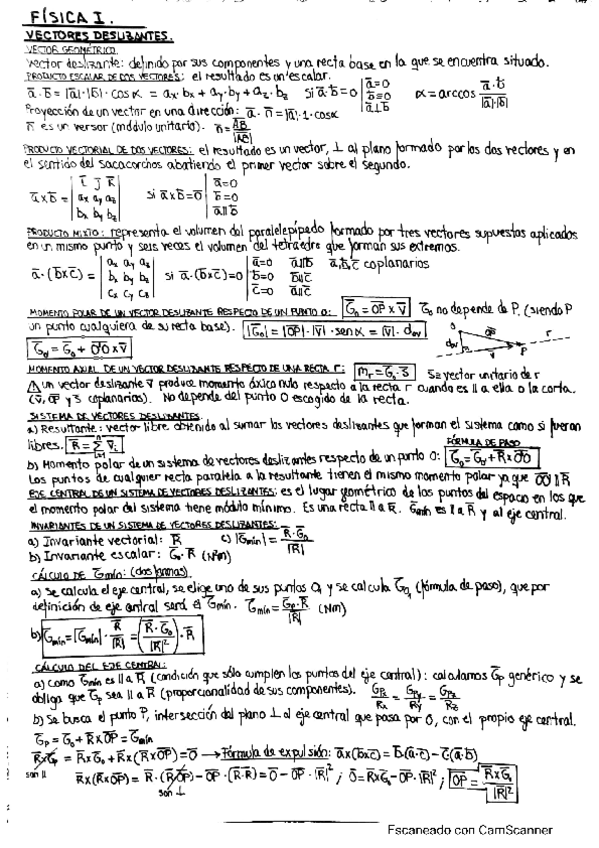 FÍSICA I.
VECTORES DESLIZANTES.
VECTOR GEOMÉTRICO.
Vector deslizante: definido por sus componentes y una recta base en la que se encuentra situado.
PRODUCTO ESCALAR DE DOS VECTORES: el resultado es un escalar.
a̅·b̅ = |a̅|·|b̅|·cosα = ax·bx + ay·by + az·bz   si a̅·b̅=0 | a̅=0 b̅=0 a̅⊥b̅   α = arccos (a̅·b̅)/(|a̅|·|b̅|)
Proyección de un vector en una dirección: a̅·n̅ = |a̅|·1·cosα
n̅ es un versor (módulo unitario). n̅ = A̅B̅/|A̅B̅|
PRODUCTO VECTORIAL DE DOS VECTORES: el resultado es un vector, ⊥ al plano formado por los dos vectores y en
el sentido del sacacorchos abatiendo el primer vector sobre el segundo.
a̅xb̅ = | i̅ j̅ k̅ | ax ay az | bx by bz |   si a̅xb̅=0̅ | a̅=0 b̅=0 a̅∥b̅
PRODUCTO MIXTO: representa el volumen del paralelepípedo formado por tres vectores supuestos aplicados
en un mismo punto y seis veces el volumen del tetraedro que forman sus extremos.
a̅·(b̅xc̅) = | ax ay az | bx by bz | cx cy cz |   si a̅·(b̅xc̅)=0 | a̅=0 b̅=0 c̅=0   a̅∥b̅ a̅∥c̅ b̅∥c̅   a̅,b̅,c̅ coplanarios
MOMENTO POLAR DE UN VECTOR DESLIZANTE RESPECTO DE UN PUNTO O: G̅o = O̅P̅ x V̅   G̅o no depende de P. (siendo P
un punto cualquiera de su recta base). |G̅o| = |O̅P̅|·|V̅|·senα = |V̅|·dov
G̅o' = G̅o + O̅'O̅ x V̅
MOMENTO AXIAL DE UN VECTOR DESLIZANTE RESPECTO DE UNA RECTA r: mr = G̅o·s̅   s̅ a vector unitario de r
⚠ un vector deslizante v̅ produce momento áxico nulo respecto a la recta r cuando es ∥ a ella o la corta.
(v̅, O̅P̅ y s̅ coplanarios). No depende del punto O escogido de la recta.
SISTEMA DE VECTORES DESLIZANTES.
a) Resultante: vector libre obtenido al sumar los vectores deslizantes que forman el sistema como si fueran
libres. R̅ = Σ v̅i
FÓRMULA DE PASO
b) Momento polar de un sistema de vectores deslizantes respecto de un punto O: G̅o = G̅o' + R̅xO̅'O̅
Los puntos de cualquier recta paralela a la resultante tienen el mismo momento polar ya que O̅O̅' ∥ R̅
EJE CENTRAL DE UN SISTEMA DE VECTORES DESLIZANTES: es el lugar geométrico de los puntos del espacio en los que
el momento polar del sistema tiene módulo mínimo. Es una recta ∥ a R̅. G̅mín es ∥ a R̅ y al eje central.
INVARIANTES DE UN SISTEMA DE VECTORES DESLIZANTES:
a) Invariante vectorial: R̅   c) |G̅mín| = (R̅·G̅o)/|R̅|
b) Invariante escalar: G̅o·R̅ (N²m)
CÁLCULO DE G̅mín: (dos formas).
a) Se calcula el eje central, se elige uno de sus puntos O₁ y se calcula G̅o₁ (fórmula de paso), que por
definición de eje central será el G̅mín. G̅mín = (G̅o·R̅)/|R̅| (Nm)
b) G̅mín = |G̅mín| · R̅/|R̅| = ((R̅·G̅o)/|R̅|²)·R̅
CÁLCULO DEL EJE CENTRAL:
a) como G̅mín es ∥ a R̅ (condición que sólo cumplen los puntos del eje central): calculamos G̅p genérico y se
obliga que G̅p sea ∥ a R̅ (proporcionalidad de sus componentes). GPx/Rx = GPy/Ry = GPz/Rz
b) Se busca el punto P, intersección del plano ⊥ al eje central que pasa por O, con el propio eje central.
G̅p = G̅o + R̅xO̅P̅ = G̅mín
R̅xG̅p = R̅xG̅o + R̅x(R̅xO̅P̅) = 0̅ → Fórmula de expulsión: a̅x(b̅xc̅) = b̅(a̅·c̅) - c̅(a̅·b̅)
son ∥   R̅x(R̅xO̅P̅) = R̅·(R̅·O̅P̅) - O̅P̅·(R̅·R̅) = 0̅ - O̅P̅·|R̅|² ; 0̅ = R̅xG̅o - O̅P̅·|R̅|² ; O̅P̅ = (R̅xG̅o)/|R̅|²
son ⊥
Escaneado con CamScanner